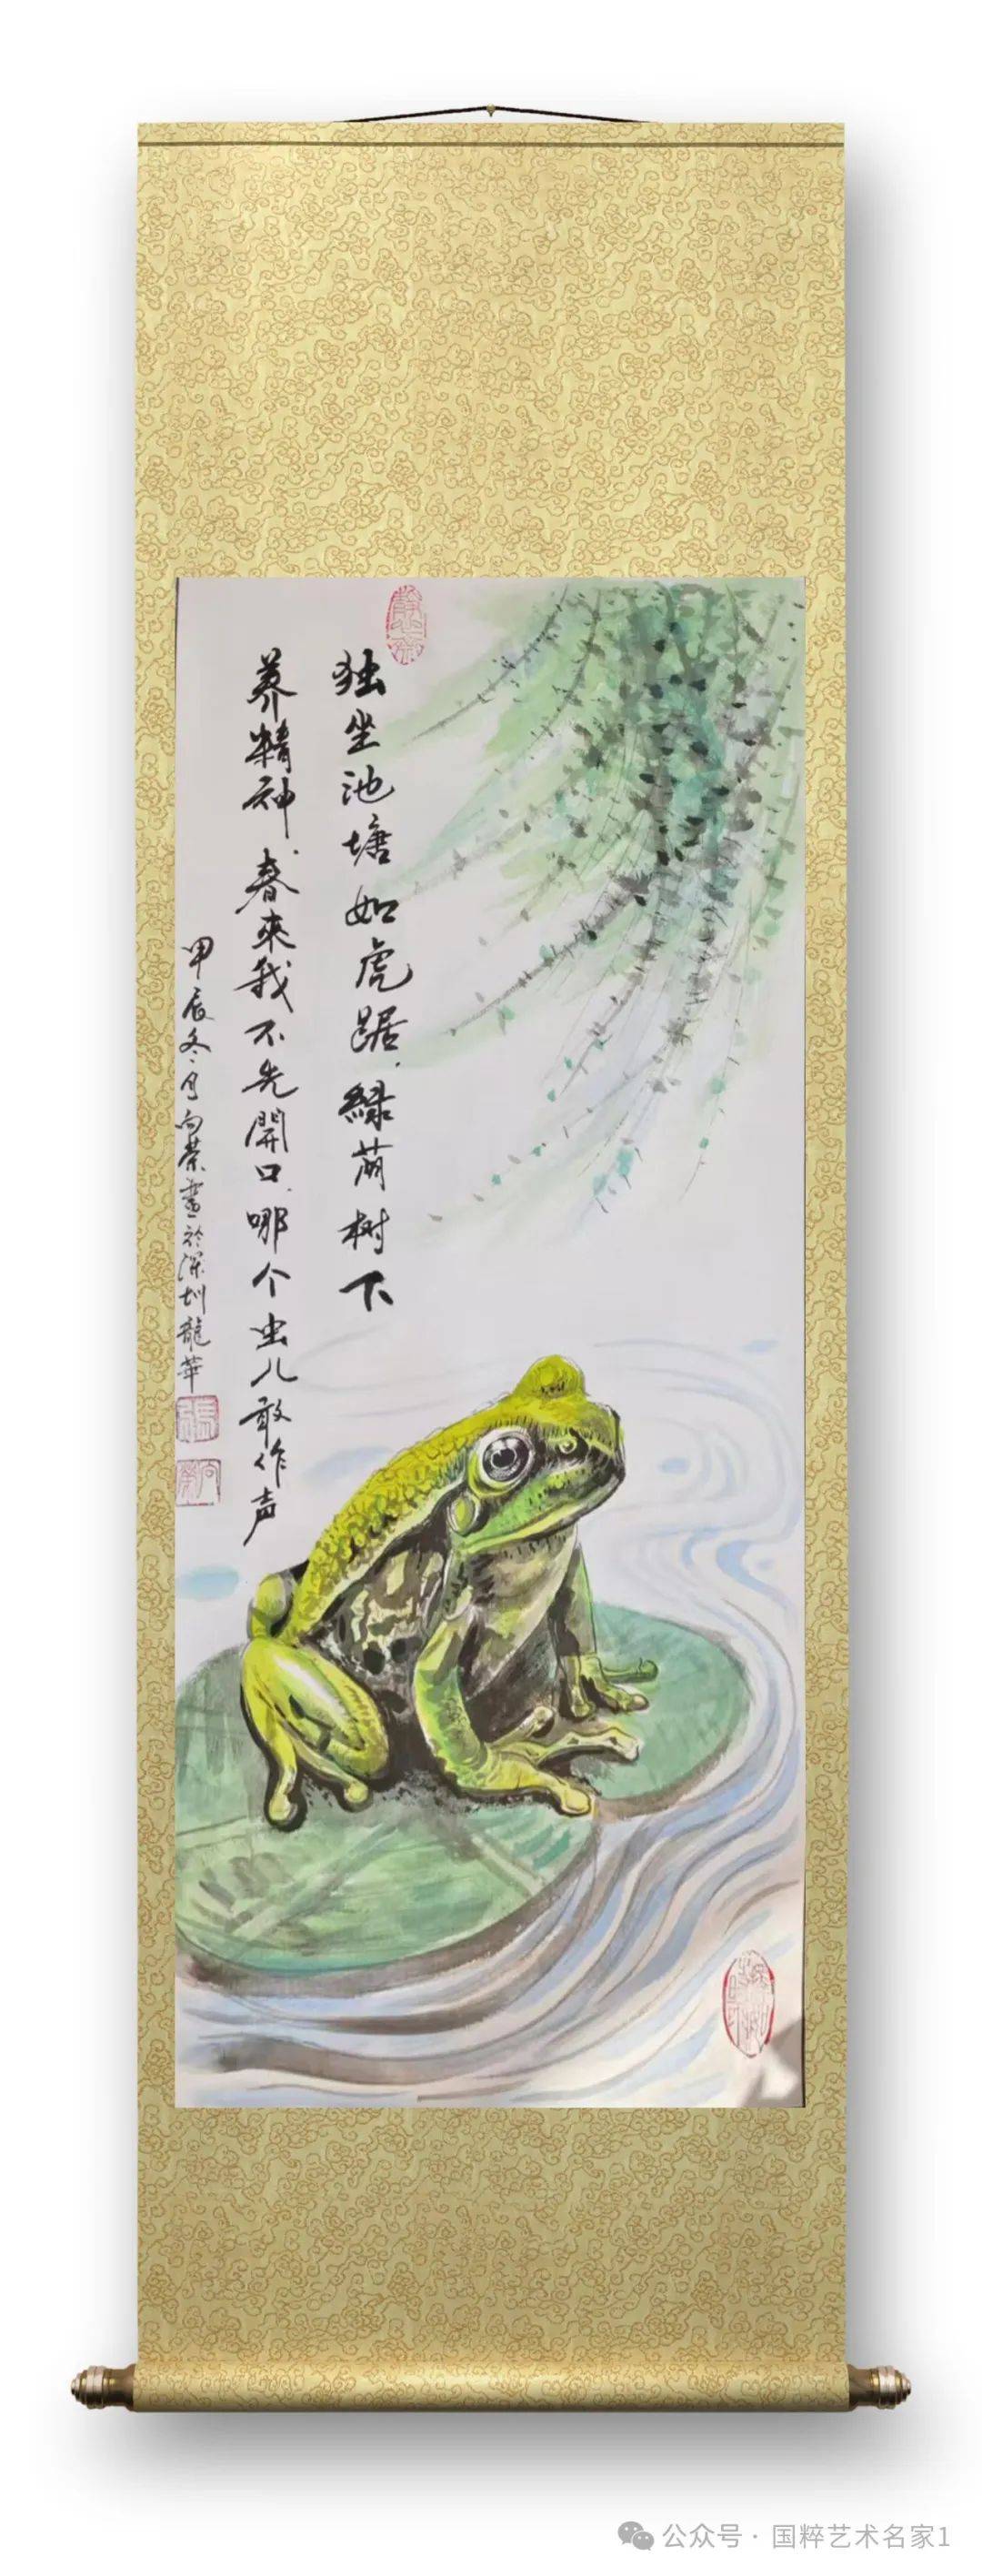 独坐池塘如虎踞.緑荫树下
养精神.春來我不先開口.哪个虫儿敢作声
甲辰冬月向荣畫於深圳龍華
張
向榮
公众号·国粹艺术名家1